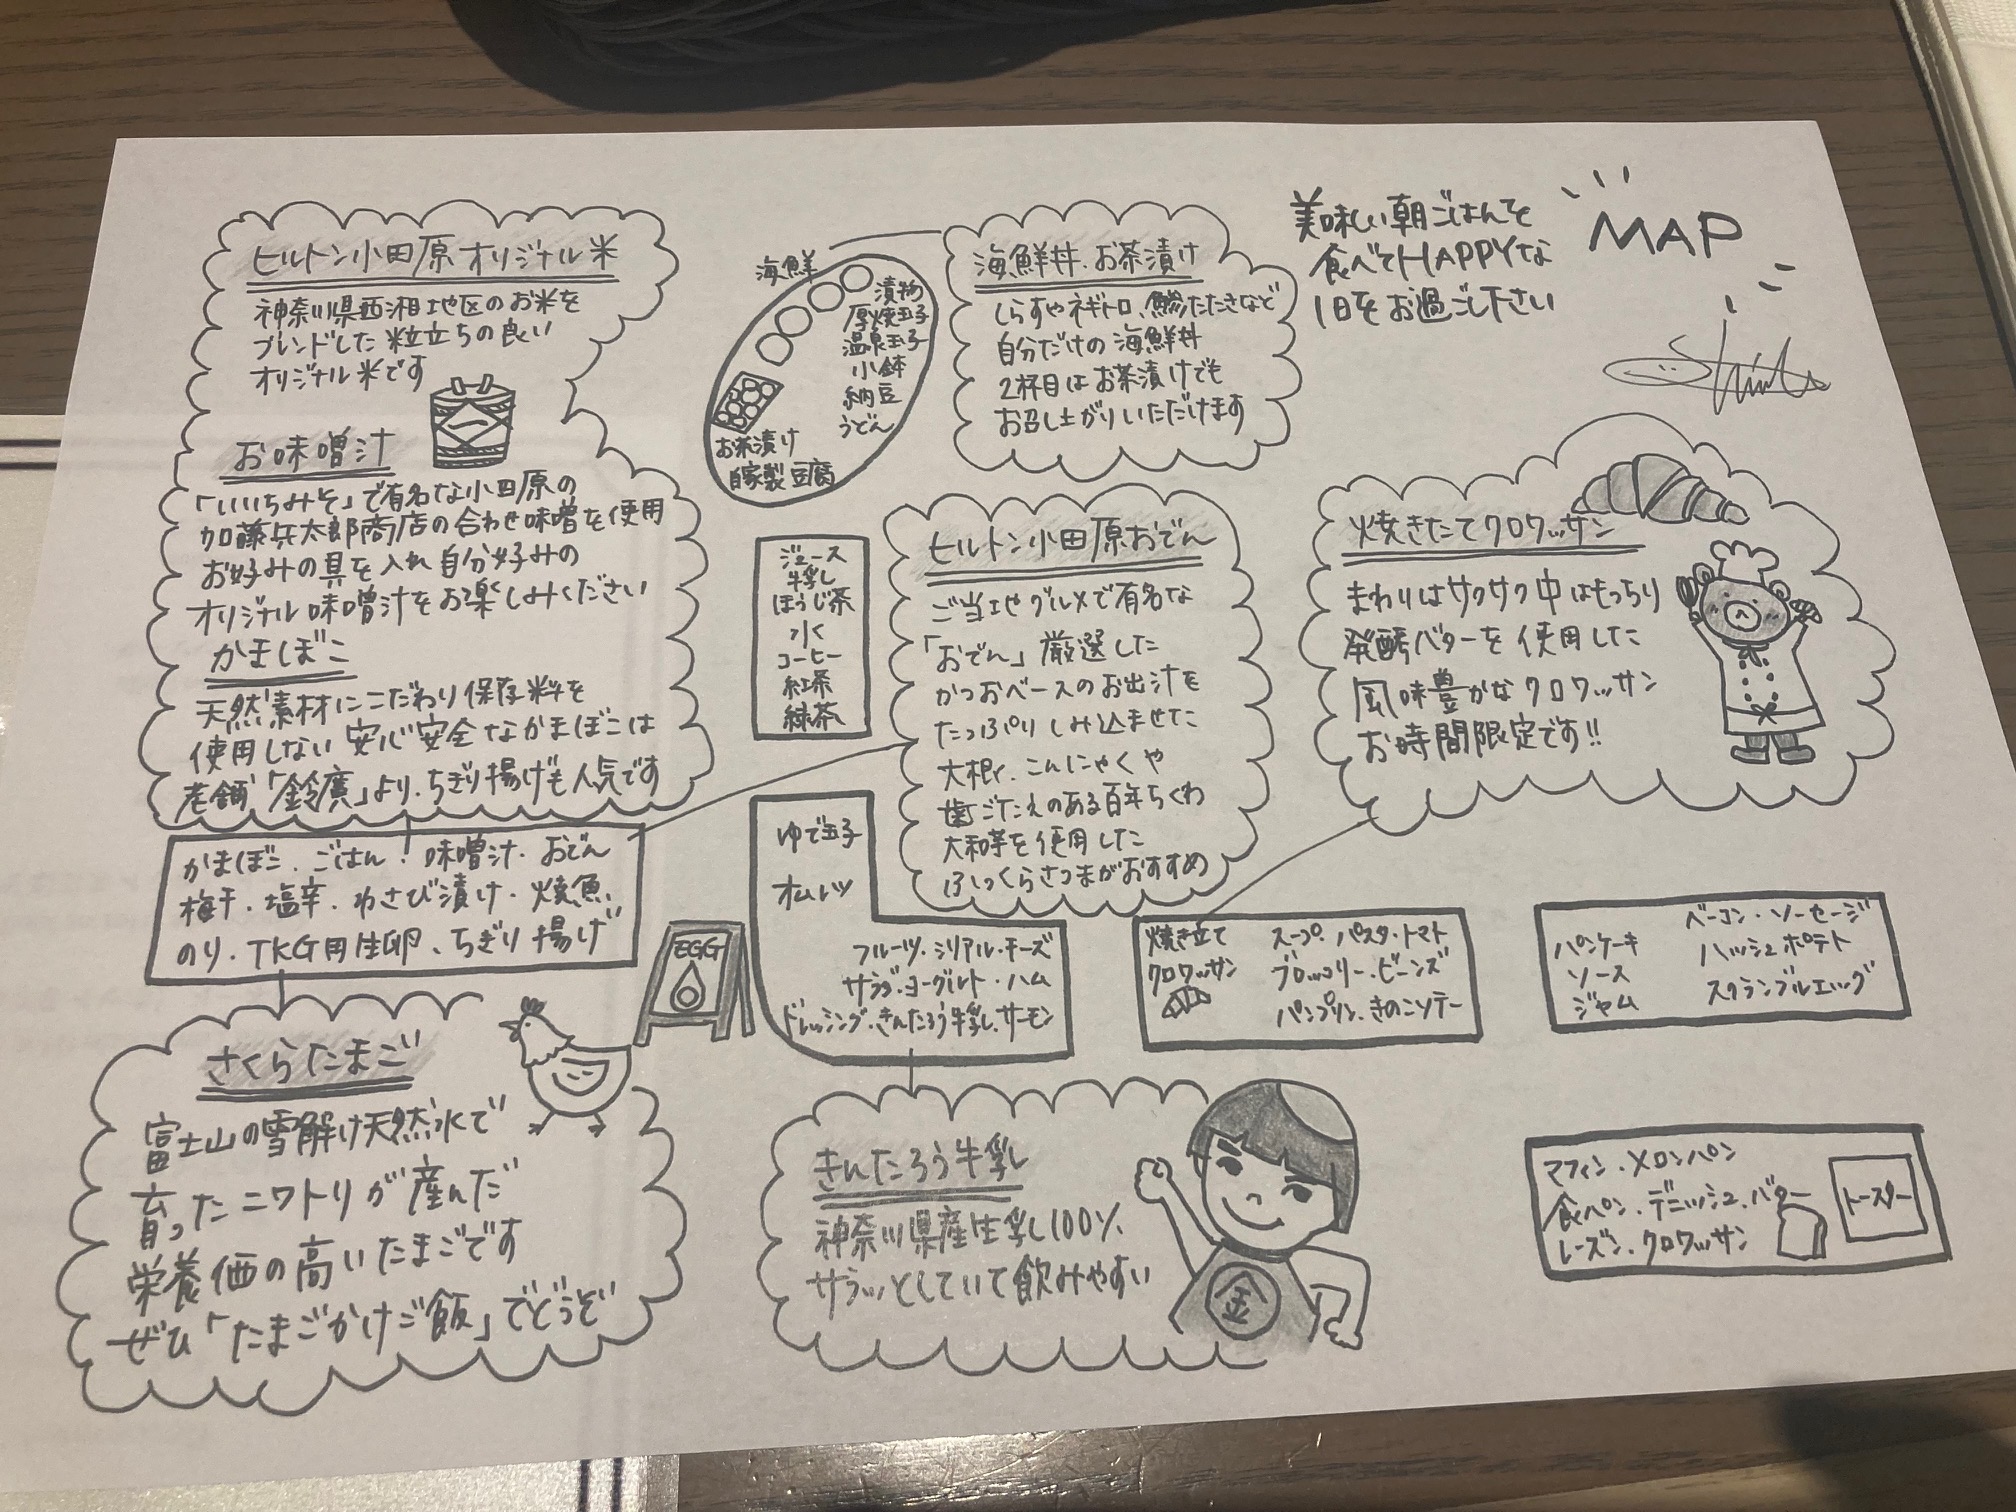 ヒルトン小田原オリジナル米
神奈川県西湘地区のお米を
ブレンドした粒立ちの良い
オリジナル米です
お味噌汁
「いいちみそ」で有名な小田原の
加藤兵太郎商店の合わせ味噌を使用
お好みの具を入れ自分好みの
オリジナル味噌汁をお楽しみください
かまぼこ
天然素材にこだわり保存料を
使用しない安心安全なかまぼこは
老舗「鈴廣」より、ちぎり揚げも人気です
かまぼこ、ごはん・味噌汁・おでん
梅干・塩辛・わさび漬け・焼魚、
のり・TKG用生卵、ちぎり揚げ
さくらたまご
富士山の雪解け天然水で
育ったニワトリが産んだ
栄養価の高いたまごです
ぜひ「たまごかけご飯」でどうぞ
海鮮
漬物
厚焼玉子
温泉玉子
小鉢
納豆
うどん
お茶漬け
自家製豆腐
海鮮丼・お茶漬け
しらすやネギトロ、鯵たたきなど
自分だけの海鮮丼
2杯目はお茶漬けでも
お召し上がりいただけます
美味しい朝ごはんを
食べてHAPPYな
1日をお過ごし下さい
MAP
ジュース
牛乳
ほうじ茶
水
コーヒー
紅茶
緑茶
ヒルトン小田原おでん
ご当地グルメで有名な
「おでん」厳選した
かつおベースのお出汁を
たっぷりしみ込ませた
大根、こんにゃくや
歯ごたえのある百年ちくわ
大和芋を使用した
ふっくらさつまがおすすめ
焼きたてクロワッサン
まわりはサクサク中はもっちり
発酵バターを使用した
風味豊かなクロワッサン
お時間限定です!!
EGG
ゆで玉子
オムレツ
フルーツ・シリアル・チーズ
サラダ・ヨーグルト・ハム
ドレッシング・きんたろう牛乳、サーモン
きんたろう牛乳
神奈川県産生乳100%
サラッとしていて飲みやすい
金
焼き立て
クロワッサン
スープ、パスタ・トマト
ブロッコリー・ビーンズ
パンプリン、きのこソテー
パンケーキ
ソース
ジャム
ベーコン・ソーセージ
ハッシュポテト
スクランブルエッグ
マフィン・メロンパン
食パン・デニッシュ・バター
レーズン・クロワッサン
トースター